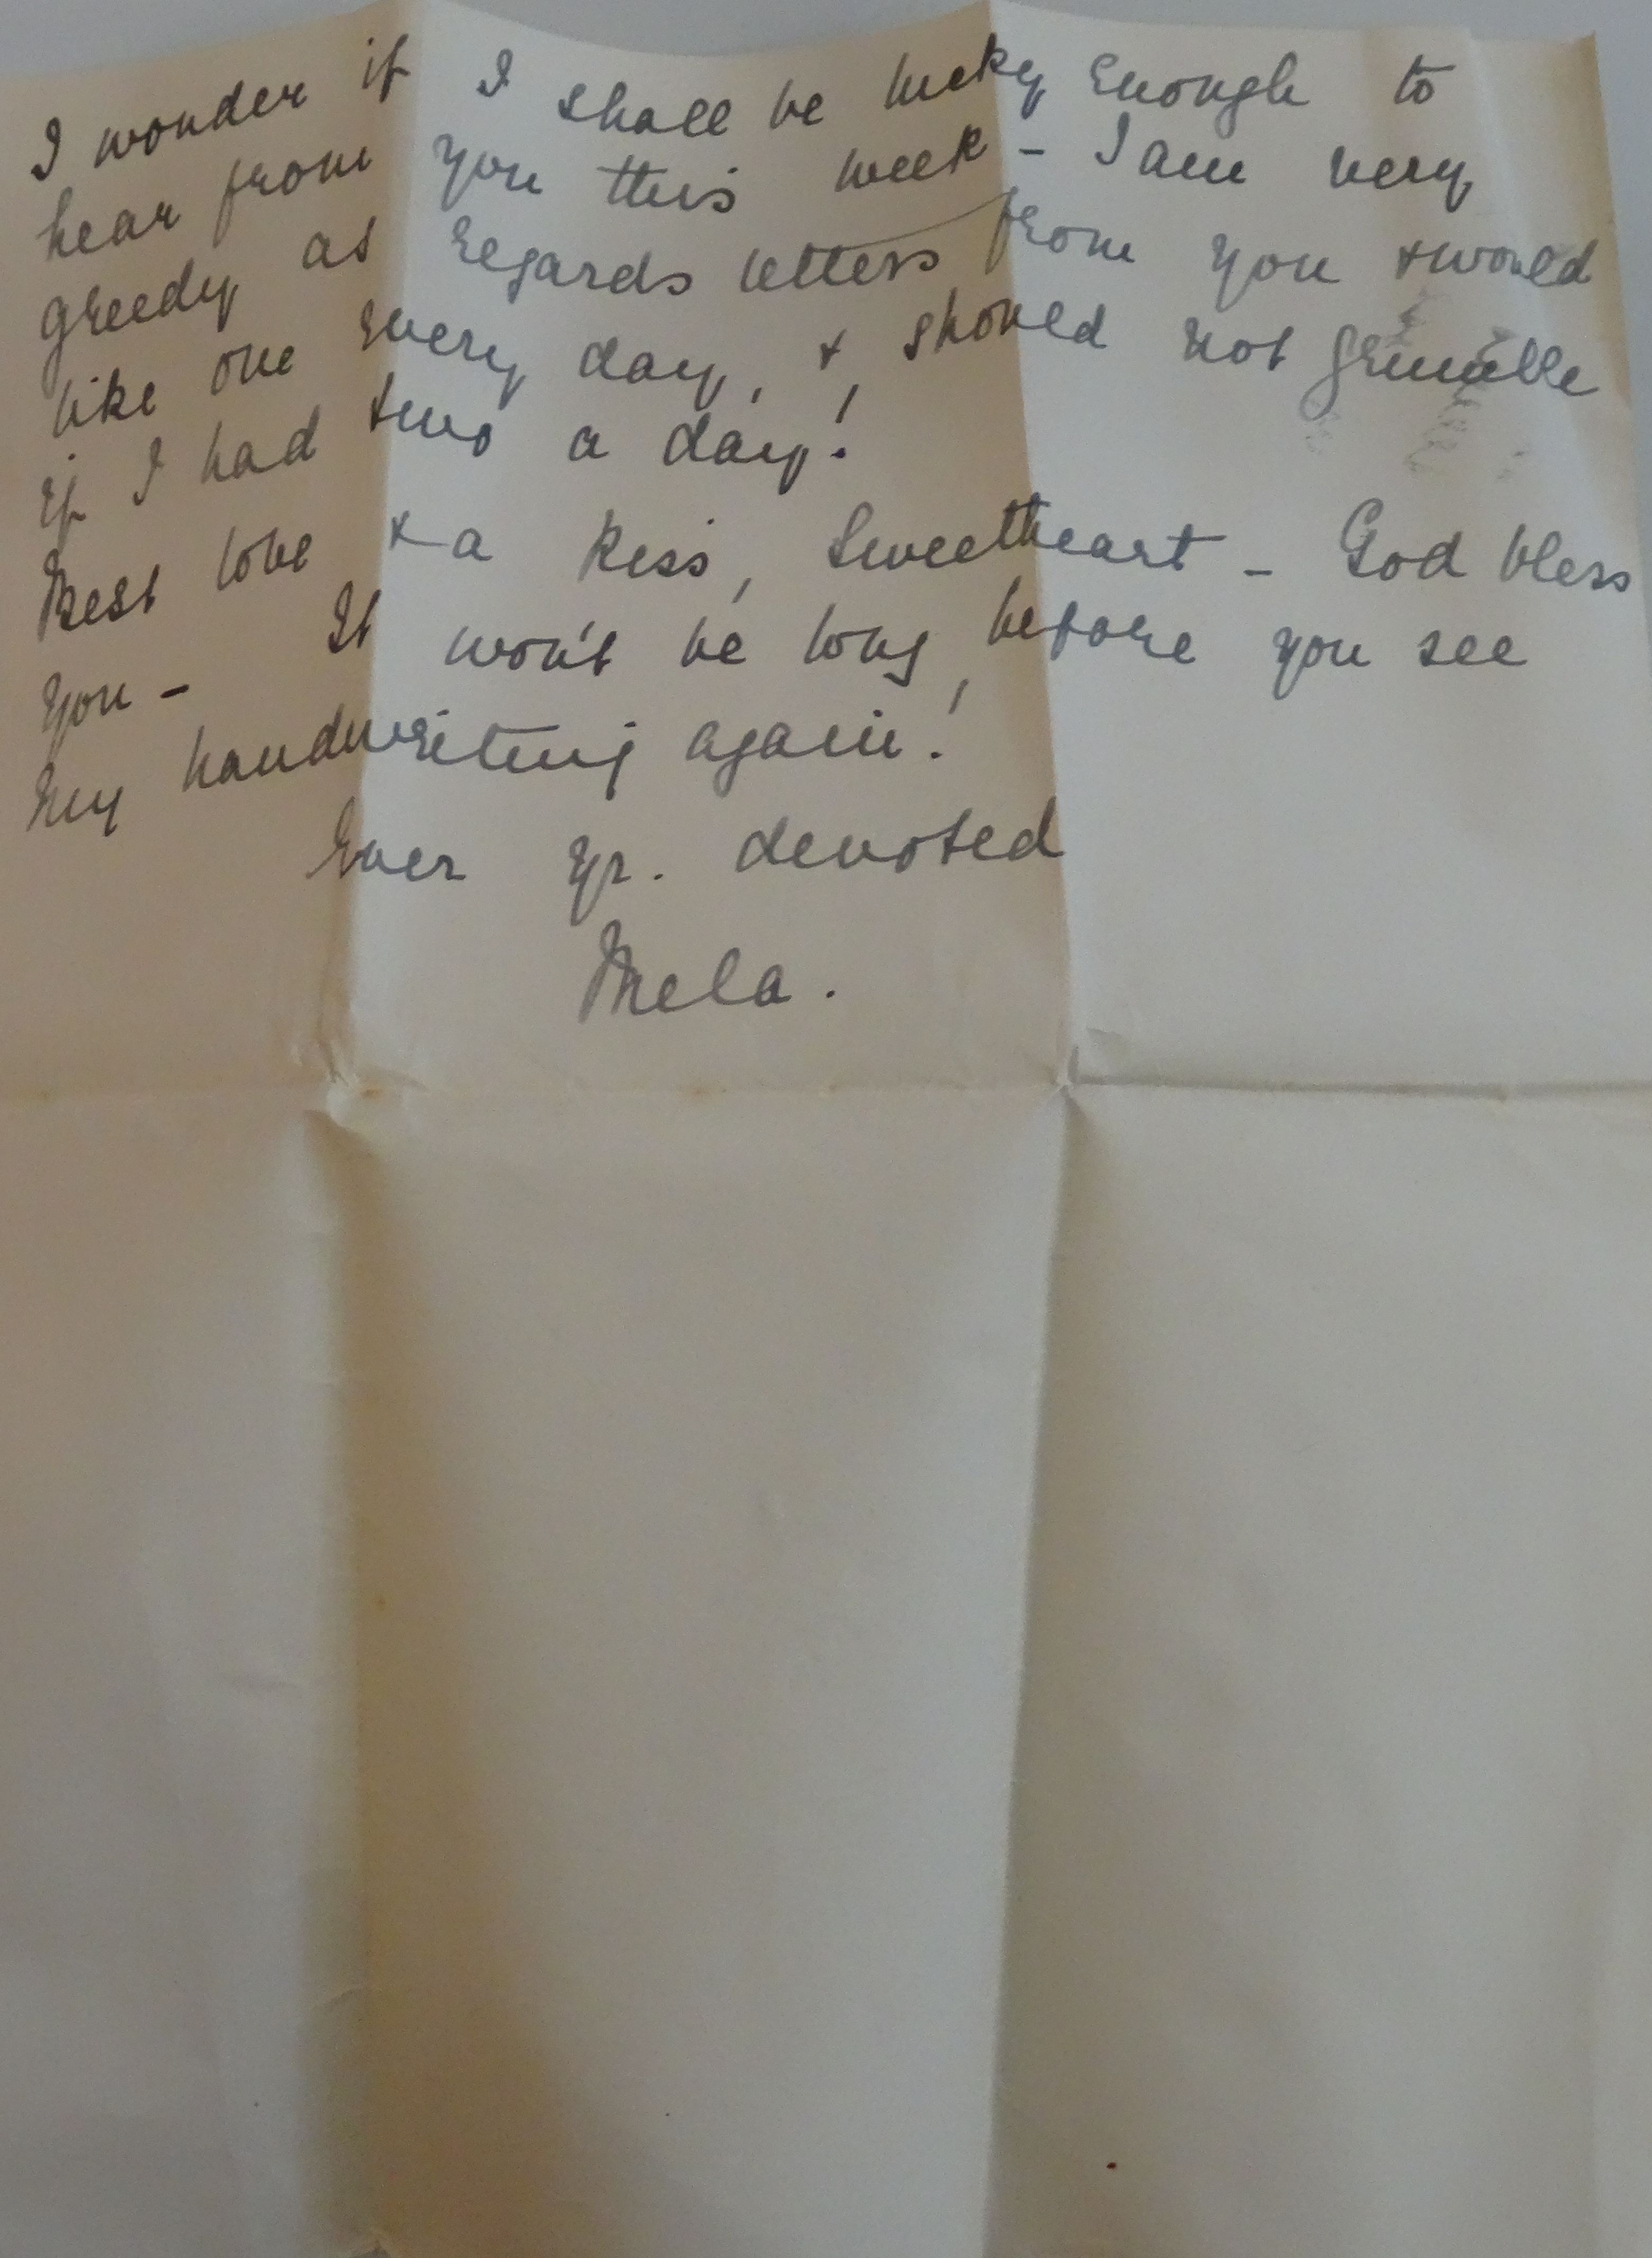 I wonder if I shall be lucky enough to
hear from you this week - I am very
greedy as regards letters from you & would
like one every day, & should not grumble
if I had two a day!
Best love & a kiss, Sweetheart - God bless
you - It won't be long, before you see
my handwriting again!
Ever yr. devoted
Mela.